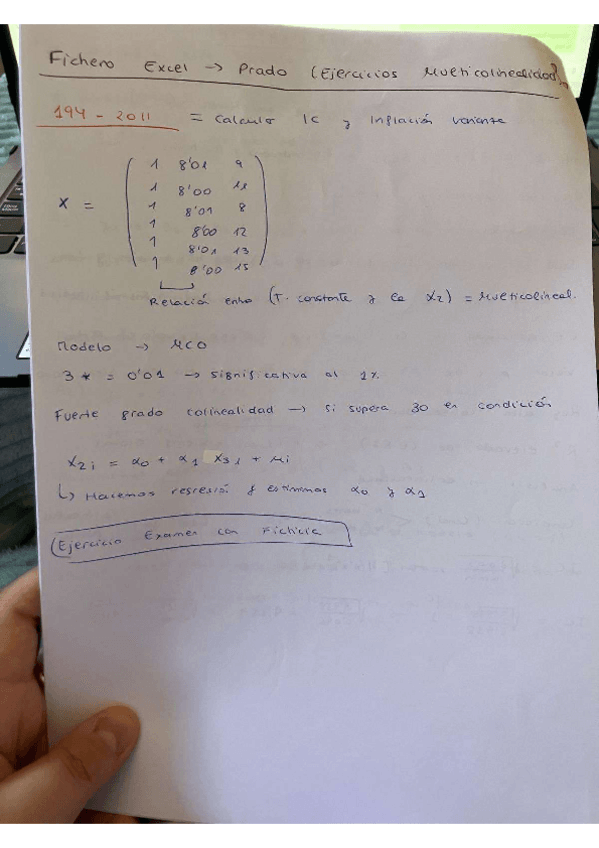 Fichero Excel → Prado (Ejercicios Multicolinealidad)
194 - 2011 = Calculo IC y Inflación varianza
X =
1 8'01 9
1 8'00 11
1 8'01 8
1 8'00 12
1 8'01 13
1 8'00 15
Relación entre (T. constante y la X2) = Multicolineal.
Modelo → MCO
3 * = 0'01 → significativa al 1%
Fuerte grado colinealidad → si supera 30 en condición
X2i = α0 + α1 X3i + μi
↳ Hacemos regresión y estimamos α0 y α1
(Ejercicio Examen con Ficticia